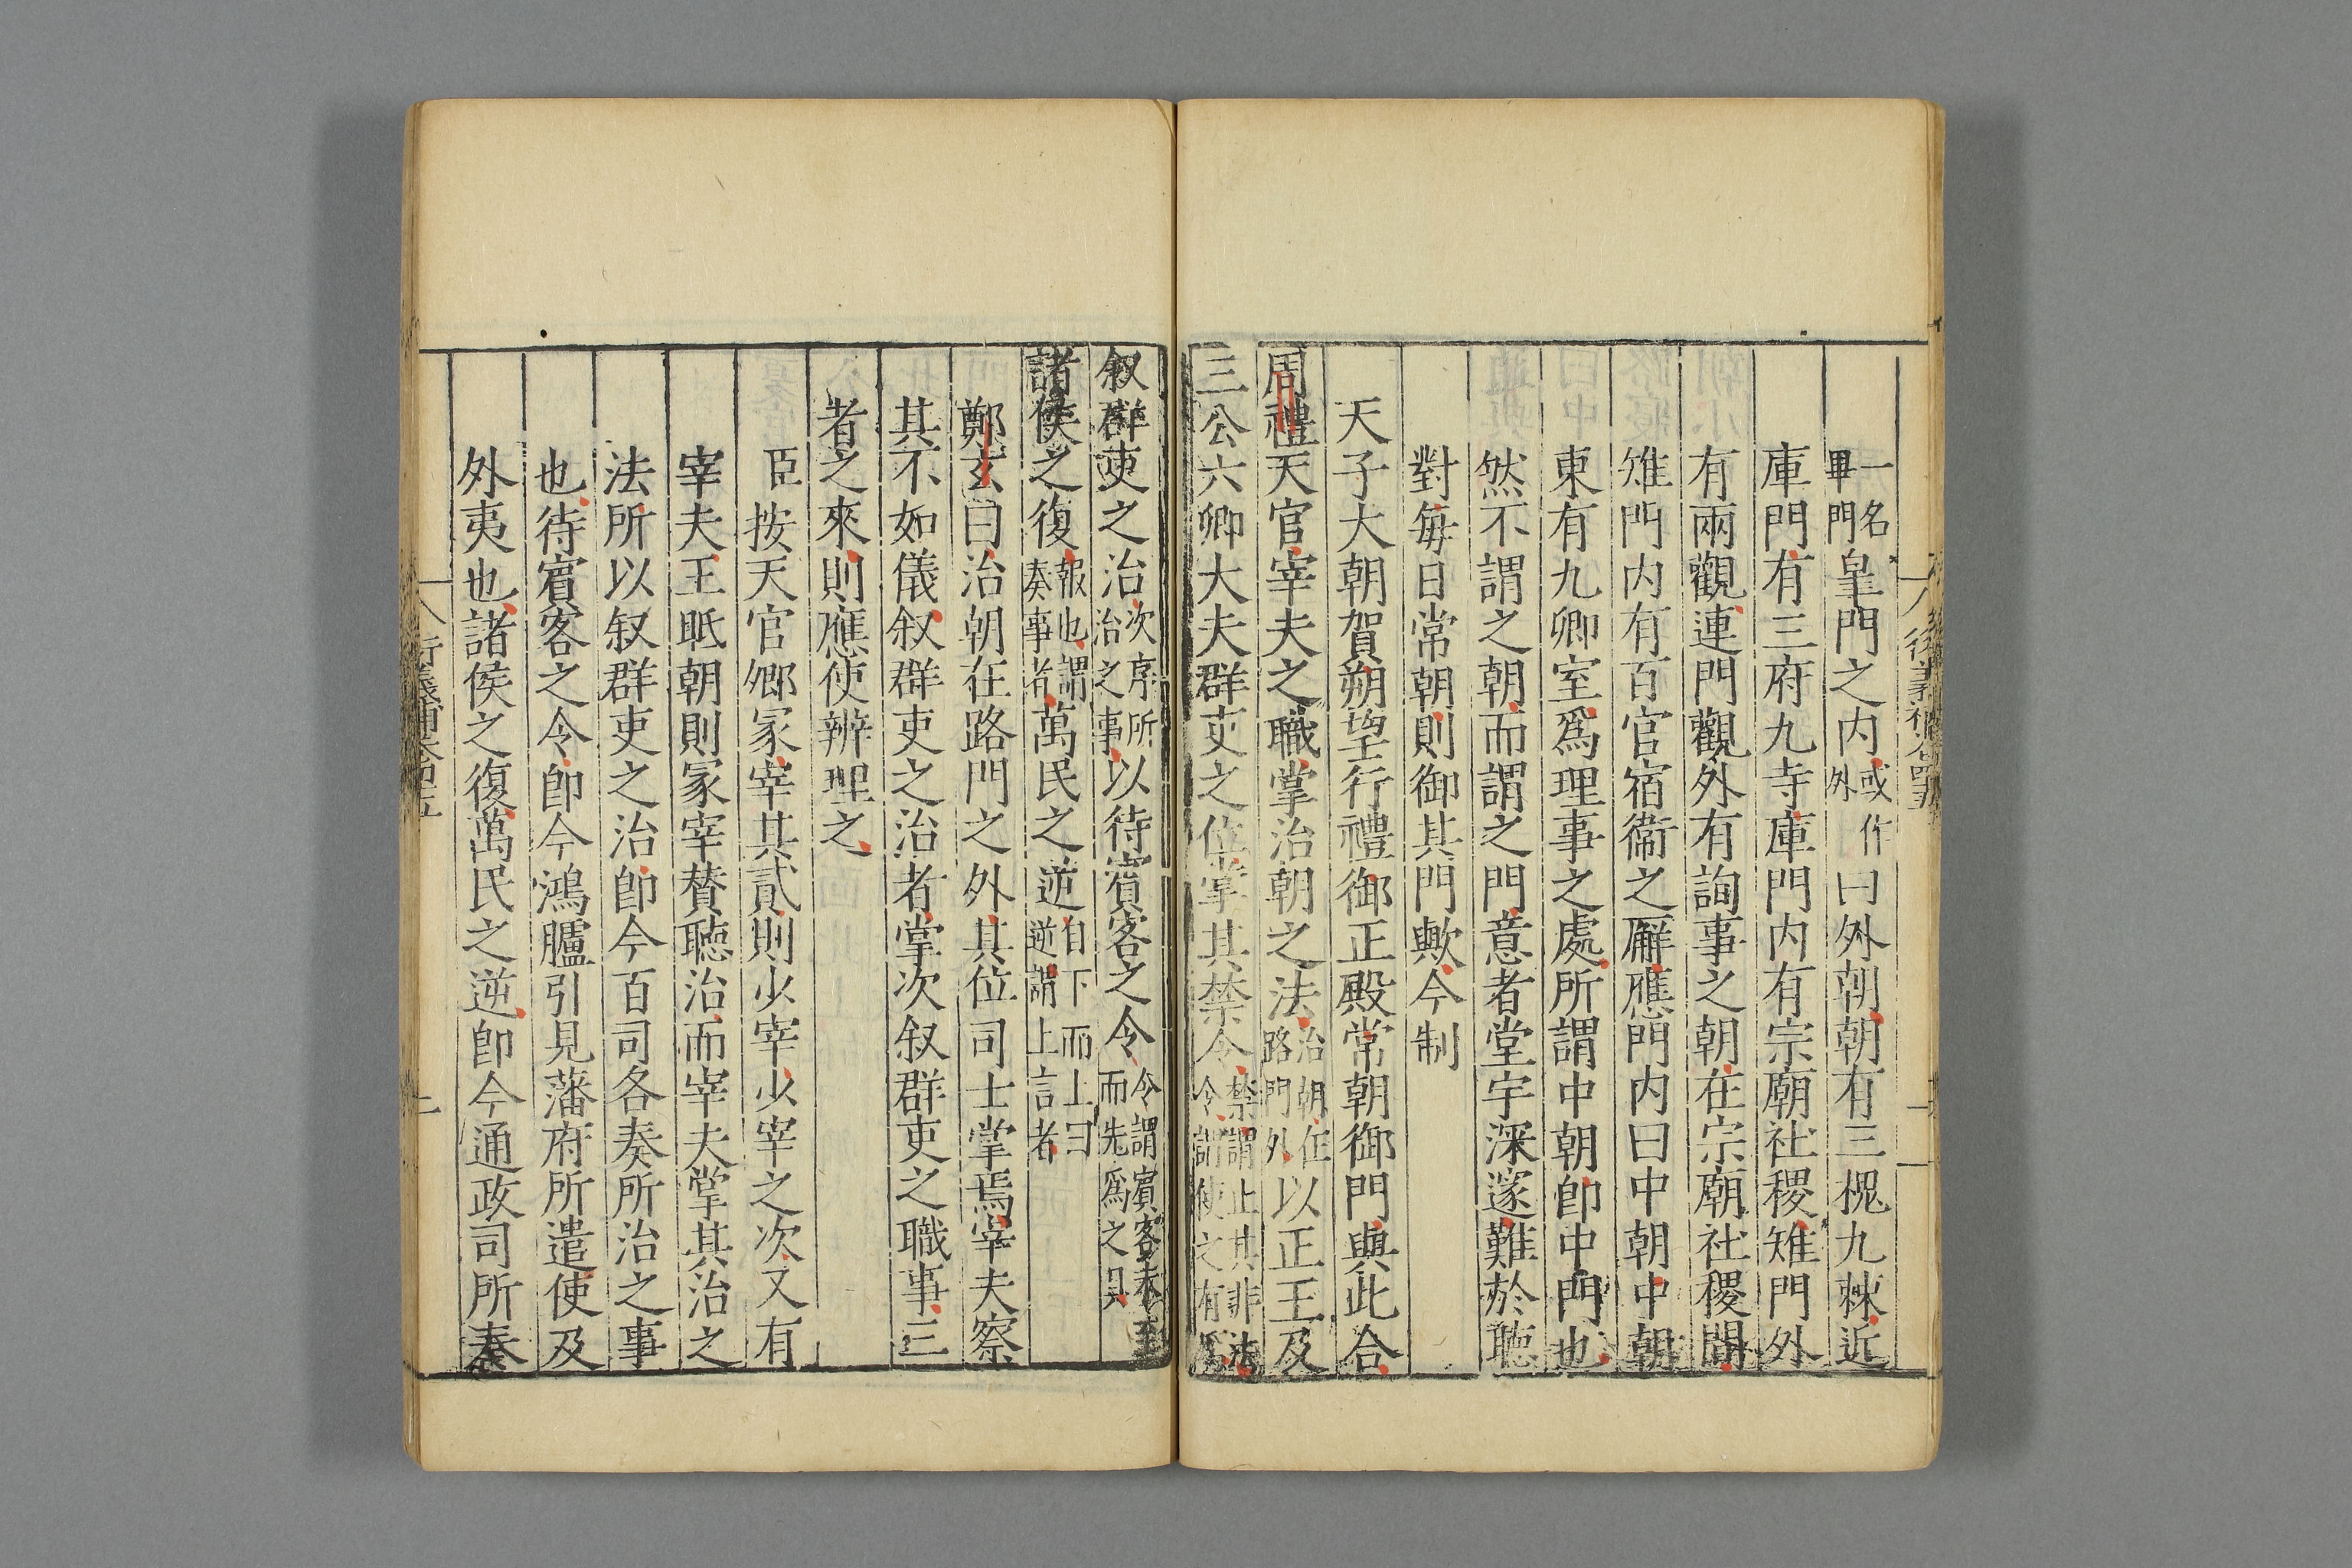 一名畢門皇門之內或作外曰外朝朝有三槐九棘近
庫門有三府九寺庫門內有宗廟社稷雉門外
有兩觀連門觀外有詢事之朝在宗廟社稷間
雉門內有百官宿衞之廨應門內曰中朝中朝
東有九卿室爲理事之處所謂中朝卽中門也
然不謂之朝而謂之門意者堂宇深邃難於聽
對每日常朝則御其門歟今制
天子大朝賀朔望行禮御正殿常朝御門與此合
周禮天官宰夫之職掌治朝之法治朝在路門外以正王及
三公六卿大夫群吏之位掌其禁令禁謂止其非法令謂使之有爲
叙群吏之治次序所治之事以待賓客之令令謂賓客未至而先爲之具
諸侯之復報也謂奏事者萬民之逆自下而上曰逆謂上言者
鄭玄曰治朝在路門之外其位司士掌焉宰夫察
其不如儀叙群吏之治者掌次叙群吏之職事三
者之來則應使辨理之
臣按天官卿冢宰其貳則少宰少宰之次又有
宰夫王眂朝則冢宰賛聽治而宰夫掌其治之
法所以叙群吏之治卽今百司各奏所治之事
也待賓客之令卽今鴻臚引見藩府所遣使及
外夷也諸侯之復萬民之逆卽今通政司所奏